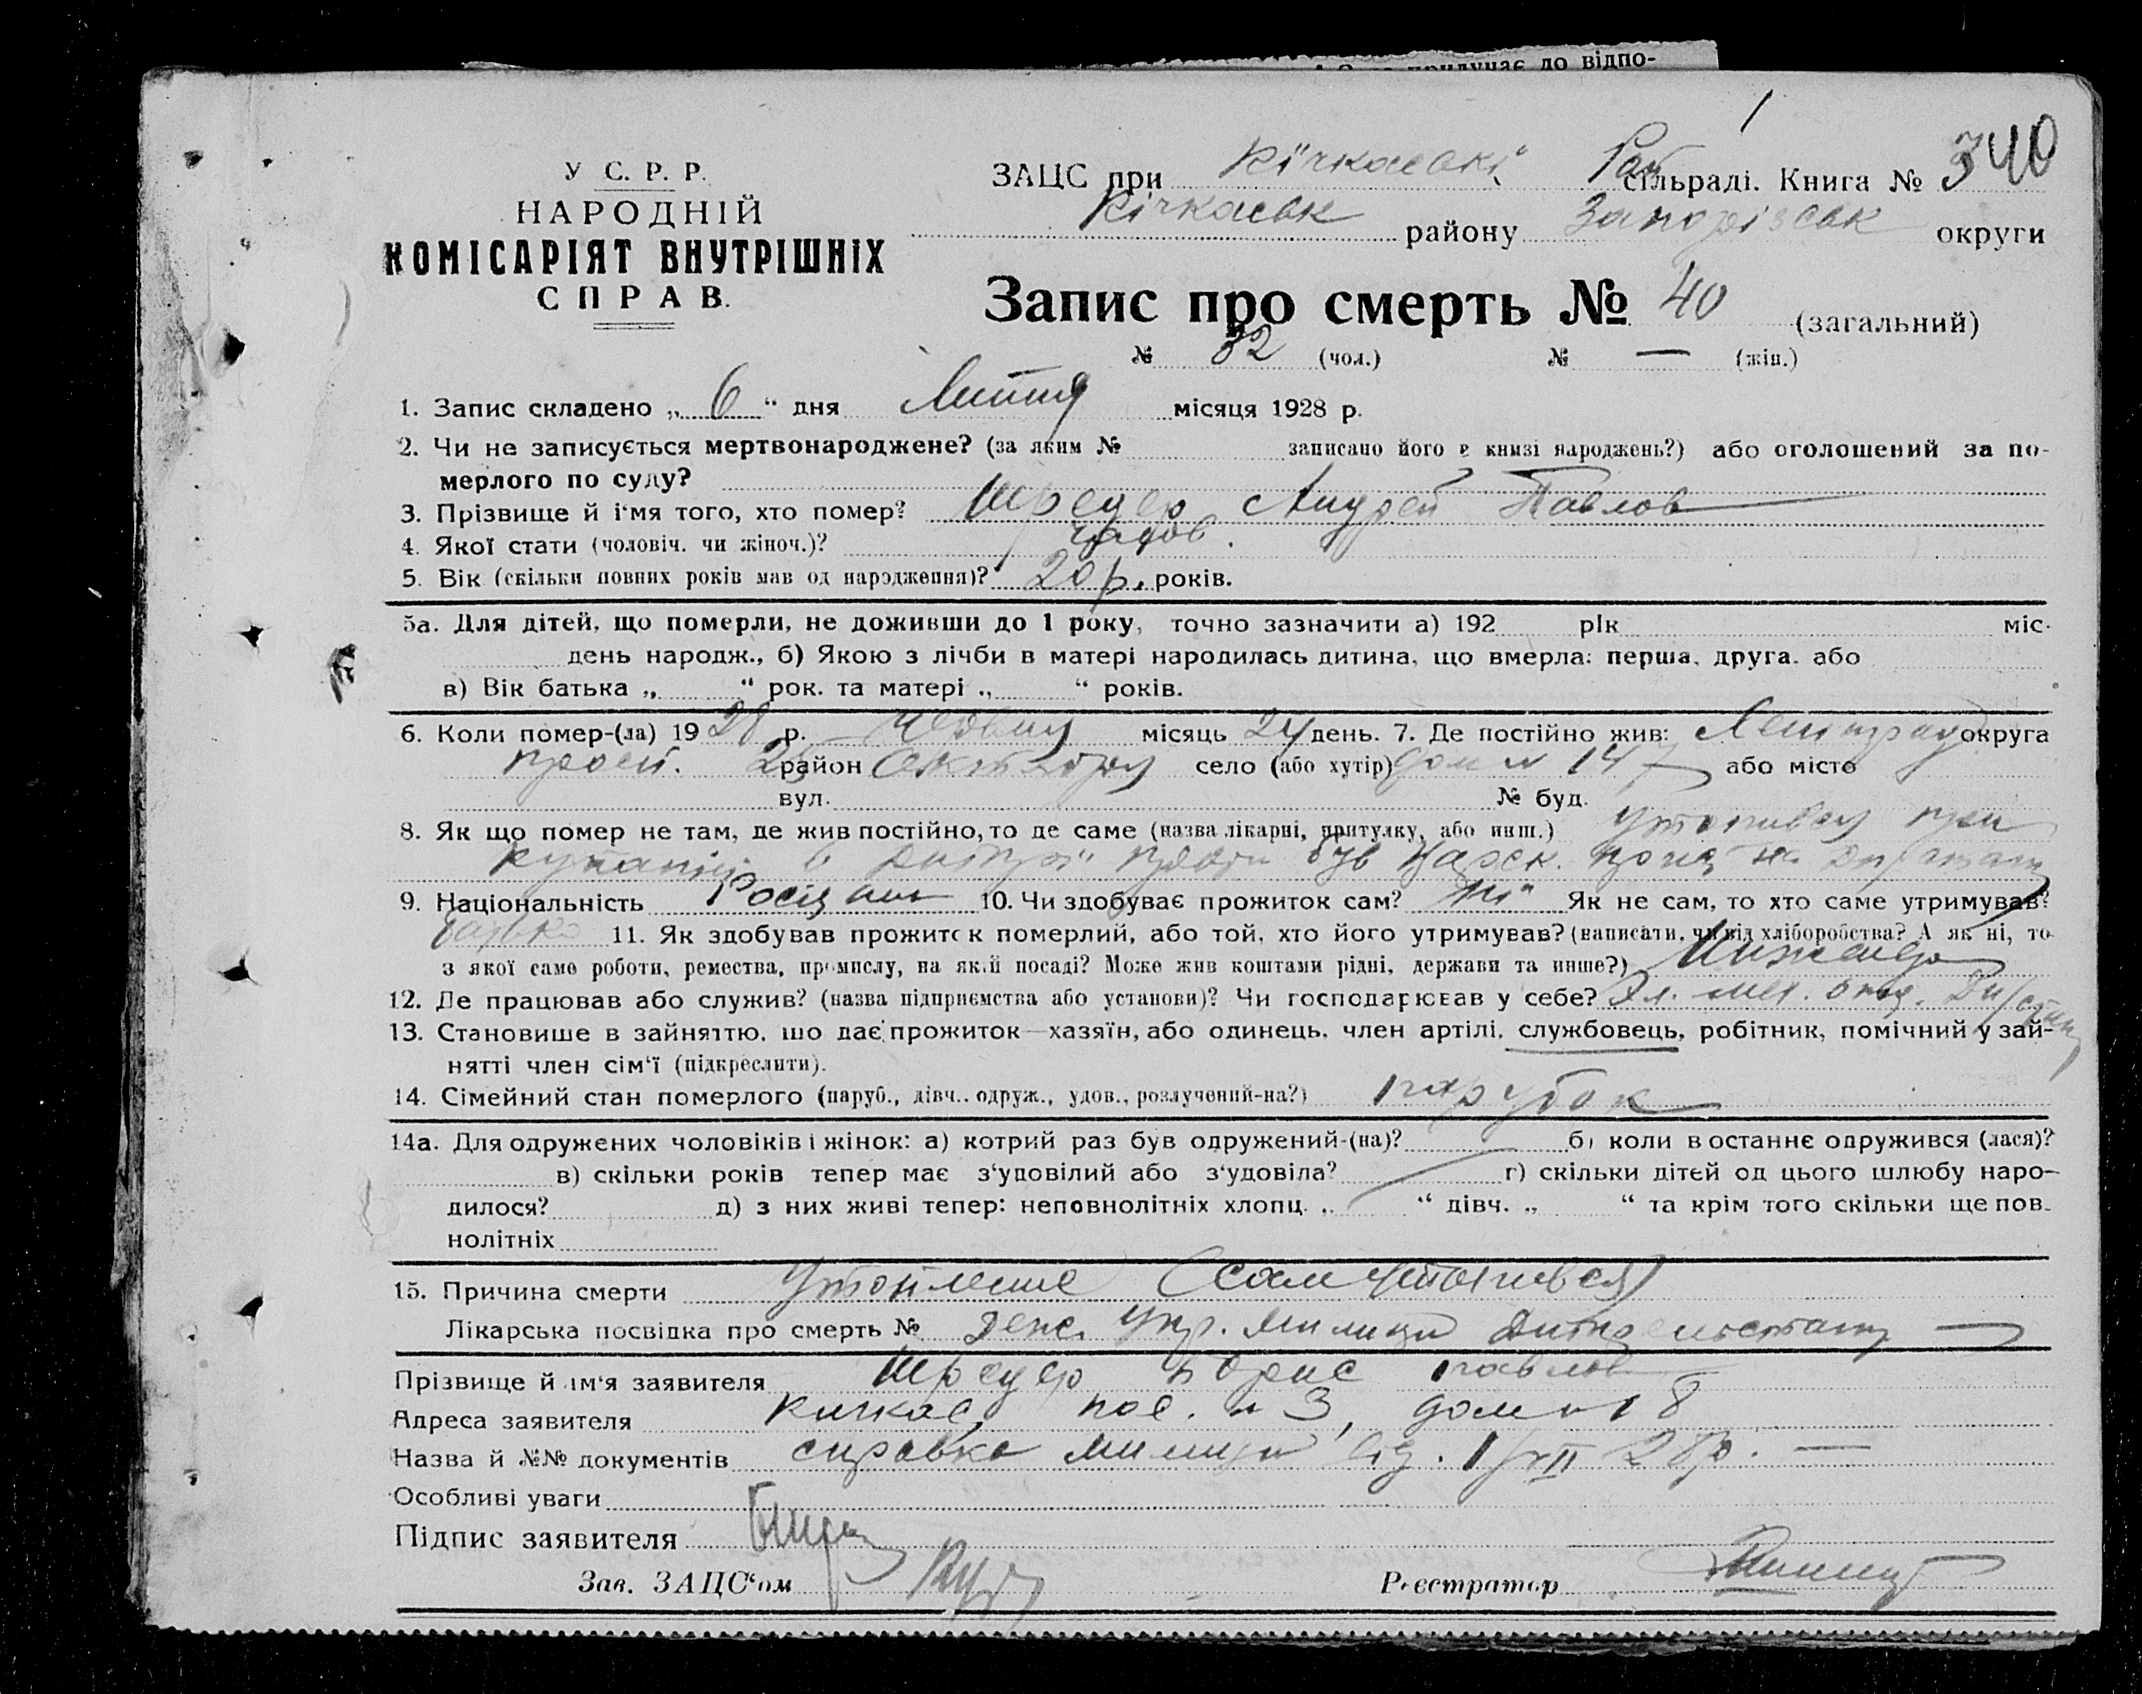 придучає до відпо-
У С. Р. Р.
НАРОДНІЙ
КОМІСАРІЯТ ВНУТРІШНІХ
СПРАВ.
ЗАЦС при Кічкаські Рай сільраді. Книга № 340
Кічкаськ району Запорізськ округи
Запис про смерть № 40 (загальний)
№ 32 (чол.) № — (жін.)
1. Запис складено „ 6 “ дня Липня місяця 1928 р.
2. Чи не записується мертвонароджене? (за яким № записано його в книзі народжень?) або оголошений за по-
мерлого по суду?
3. Прізвище й і'мя того, хто помер? Шредер Андрей Павлов
4. Якої стати (чоловіч. чи жіноч.)? чолов.
5. Вік (скільки повних років мав од народження)? 20 р. років.
5а. Для дітей, що померли, не доживши до 1 року, точно зазначити а) 192 рік міс.
день народж., б) Якою з лічби в матері народилась дитина, що вмерла: перша, друга. або
в) Вік батька „ “ рок. та матері „ “ років.
6. Коли помер-(ла) 19 28 р. Червня місяць 24 день. 7. Де постійно жив: Ленинград округа
просп. 25 район Октября село (або хутір) дом № 14 або місто
вул. № буд.
8. Як що помер не там, де жив постійно, то де саме (назва лікарні, притулку, або инш.) Утопився при
купанні в Дніпрі
9. Національність Росіянин 10. Чи здобуває прожиток сам? ні Як не сам, то хто саме утримував?
батько 11. Як здобував прожиток померлий, або той, хто його утримував? (написати, чи від хліборобства? А як ні, то
з якої саме роботи, ремества, промислу, на якій посаді? Може жив коштами рідні, держави та инше?) Инженер
12. Де працював або служив? (назва підприємства або установи)? Чи господарював у себе? Эл. мех. отд.
13. Становище в зайняттю, що дає прожиток—хазяїн, або одинець, член артілі, службовець, робітник, помічний у зай-
нятті член сім'ї (підкреслити).
14. Сімейний стан померлого (паруб., дівч., одруж., удов., розлучений-на?) парубок
14а. Для одружених чоловіків і жінок: а) котрий раз був одружений-(на)? б) коли в останнє одружився (лася)?
в) скільки років тепер має з'удовілий або з'удовіла? г) скільки дітей од цього шлюбу наро-
дилося? д) з них живі тепер: неповнолітніх хлопц. „ “ дівч. „ “ та крім того скільки ще пов-
нолітніх
15. Причина смерти Утопление (сам утопився)
Лікарська посвідка про смерть № милиции
Прізвище й ім'я заявителя Шредер Борис Павлов
Адреса заявителя Кичкас, пос. № 3, дом № 18
Назва й №№ документів справка милиции від. 1/VII 28 р. —
Особливі уваги
Підпис заявителя
Зав. ЗАЦС'ом
Реєстратор